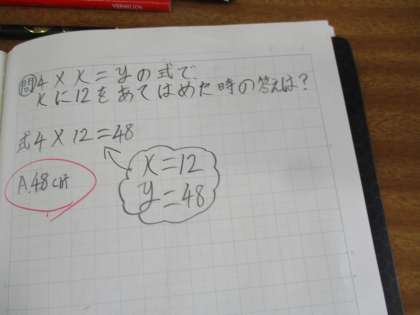 VERMILION
問 4×x=yの式で、
xに12をあてはめた時の答えは?
式 4×12=48
x=12
y=48
A.48cm